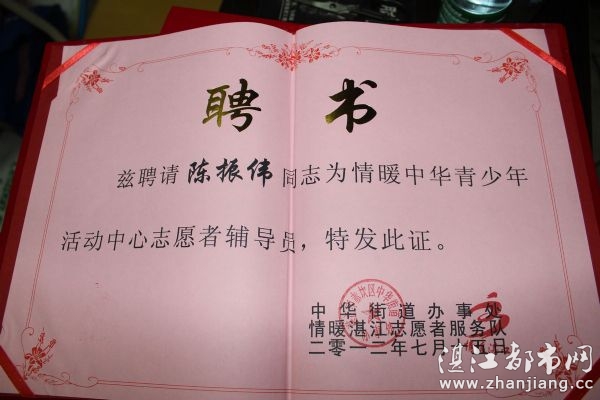 聘书
兹聘请陈振伟同志为情暖中华青少年
活动中心志愿者辅导员，特发此证。
中华街道办事处
情暖湛江志愿者服务队
二零一二年七月十四日
湛江都市网
www.zhanjiang.cc